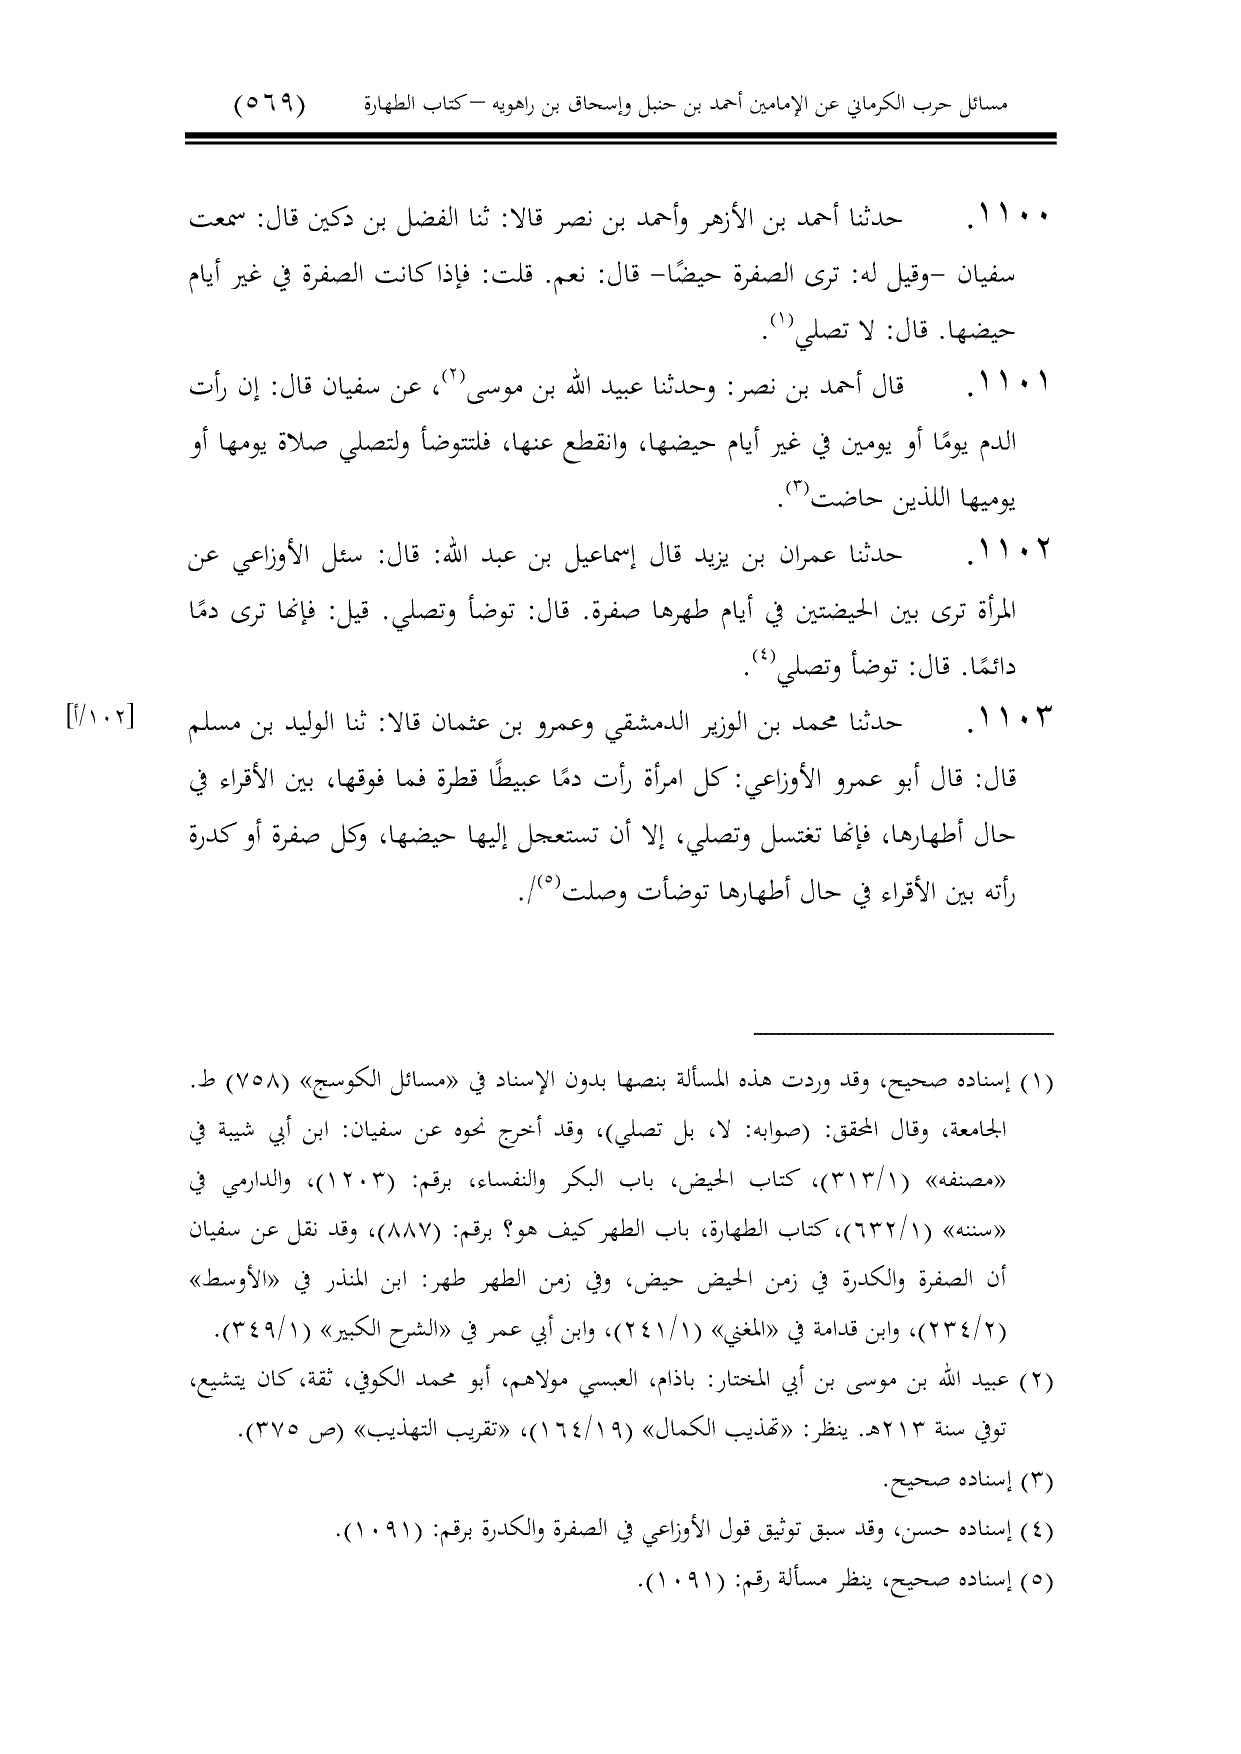 مسائل حرب الكرماني عن الإمامين أحمد بن حنبل وإسحاق بن راهويه –كتاب الطهارة (٥٦٩)
١١٠٠. حدثنا أحمد بن الأزهر وأحمد بن نصر قالا: ثنا الفضل بن دكين قال: سمعت
سفيان –وقيل له: ترى الصفرة حيضًا– قال: نعم. قلت: فإذا كانت الصفرة في غير أيام
حيضها. قال: لا تصلي(١).
١١٠١. قال أحمد بن نصر: وحدثنا عبيد الله بن موسى(٢)، عن سفيان قال: إن رأت
الدم يومًا أو يومين في غير أيام حيضها، وانقطع عنها، فلتتوضأ ولتصلي صلاة يومها أو
يوميها اللذين حاضت(٣).
١١٠٢. حدثنا عمران بن يزيد قال إسماعيل بن عبد الله: قال: سئل الأوزاعي عن
المرأة ترى بين الحيضتين في أيام طهرها صفرة. قال: توضأ وتصلي. قيل: فإنها ترى دمًا
دائمًا. قال: توضأ وتصلي(٤).
١١٠٣. حدثنا محمد بن الوزير الدمشقي وعمرو بن عثمان قالا: ثنا الوليد بن مسلم [١٠٢/أ]
قال: قال أبو عمرو الأوزاعي: كل امرأة رأت دمًا عبيطًا قطرة فما فوقها، بين الأقراء في
حال أطهارها، فإنها تغتسل وتصلي، إلا أن تستعجل إليها حيضها، وكل صفرة أو كدرة
رأته بين الأقراء في حال أطهارها توضأت وصلت(٥)/.
(١) إسناده صحيح، وقد وردت هذه المسألة بنصها بدون الإسناد في «مسائل الكوسج» (٧٥٨) ط.
الجامعة، وقال المحقق: (صوابه: لا، بل تصلي)، وقد أخرج نحوه عن سفيان: ابن أبي شيبة في
«مصنفه» (٣١٣/١)، كتاب الحيض، باب البكر والنفساء، برقم: (١٢٠٣)، والدارمي في
«سننه» (٦٣٢/١)، كتاب الطهارة، باب الطهر كيف هو؟ برقم: (٨٨٧)، وقد نقل عن سفيان
أن الصفرة والكدرة في زمن الحيض حيض، وفي زمن الطهر طهر: ابن المنذر في «الأوسط»
(٢٣٤/٢)، وابن قدامة في «المغني» (٢٤١/١)، وابن أبي عمر في «الشرح الكبير» (٣٤٩/١).
(٢) عبيد الله بن موسى بن أبي المختار: باذام، العبسي مولاهم، أبو محمد الكوفي، ثقة، كان يتشيع،
توفي سنة ٢١٣هـ. ينظر: «تهذيب الكمال» (١٦٤/١٩)، «تقريب التهذيب» (ص ٣٧٥).
(٣) إسناده صحيح.
(٤) إسناده حسن، وقد سبق توثيق قول الأوزاعي في الصفرة والكدرة برقم: (١٠٩١).
(٥) إسناده صحيح، ينظر مسألة رقم: (١٠٩١).